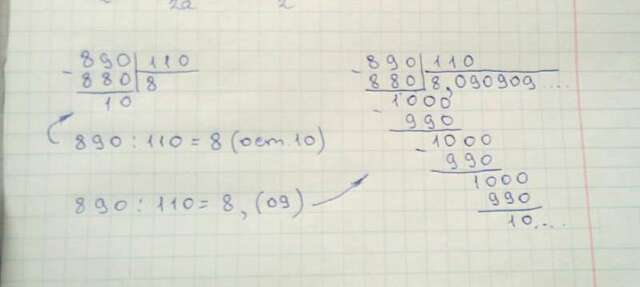 2a 2
890 110
- 880 8
10
890 : 110 = 8 (ост. 10)
890 : 110 = 8, (09)
890 110
- 880 8,090909...
1000
- 990
1000
- 990
1000
990
10...